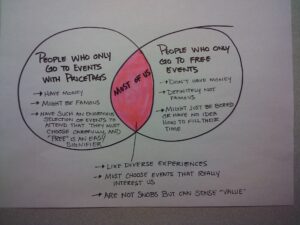 PEOPLE WHO ONLY
GO TO EVENTS
WITH PRICETAGS
→ HAVE MONEY
→ MIGHT BE FAMOUS
→ HAVE SUCH AN ENORMOUS
SELECTION OF EVENTS TO
ATTEND THAT THEY MUST
CHOOSE CAREFULLY, AND
"FREE" IS AN EASY
SIGNIFIER
MOST OF US
PEOPLE WHO ONLY
GO TO FREE
EVENTS
→ DON'T HAVE MONEY
→ DEFINITELY NOT
FAMOUS
→ MIGHT JUST BE BORED
OR HAVE NO IDEA
HOW TO FILL THEIR
TIME.
→ LIKE DIVERSE EXPERIENCES
→ MUST CHOOSE EVENTS THAT REALLY
INTEREST US
→ ARE NOT SNOBS BUT CAN SENSE "VALUE"